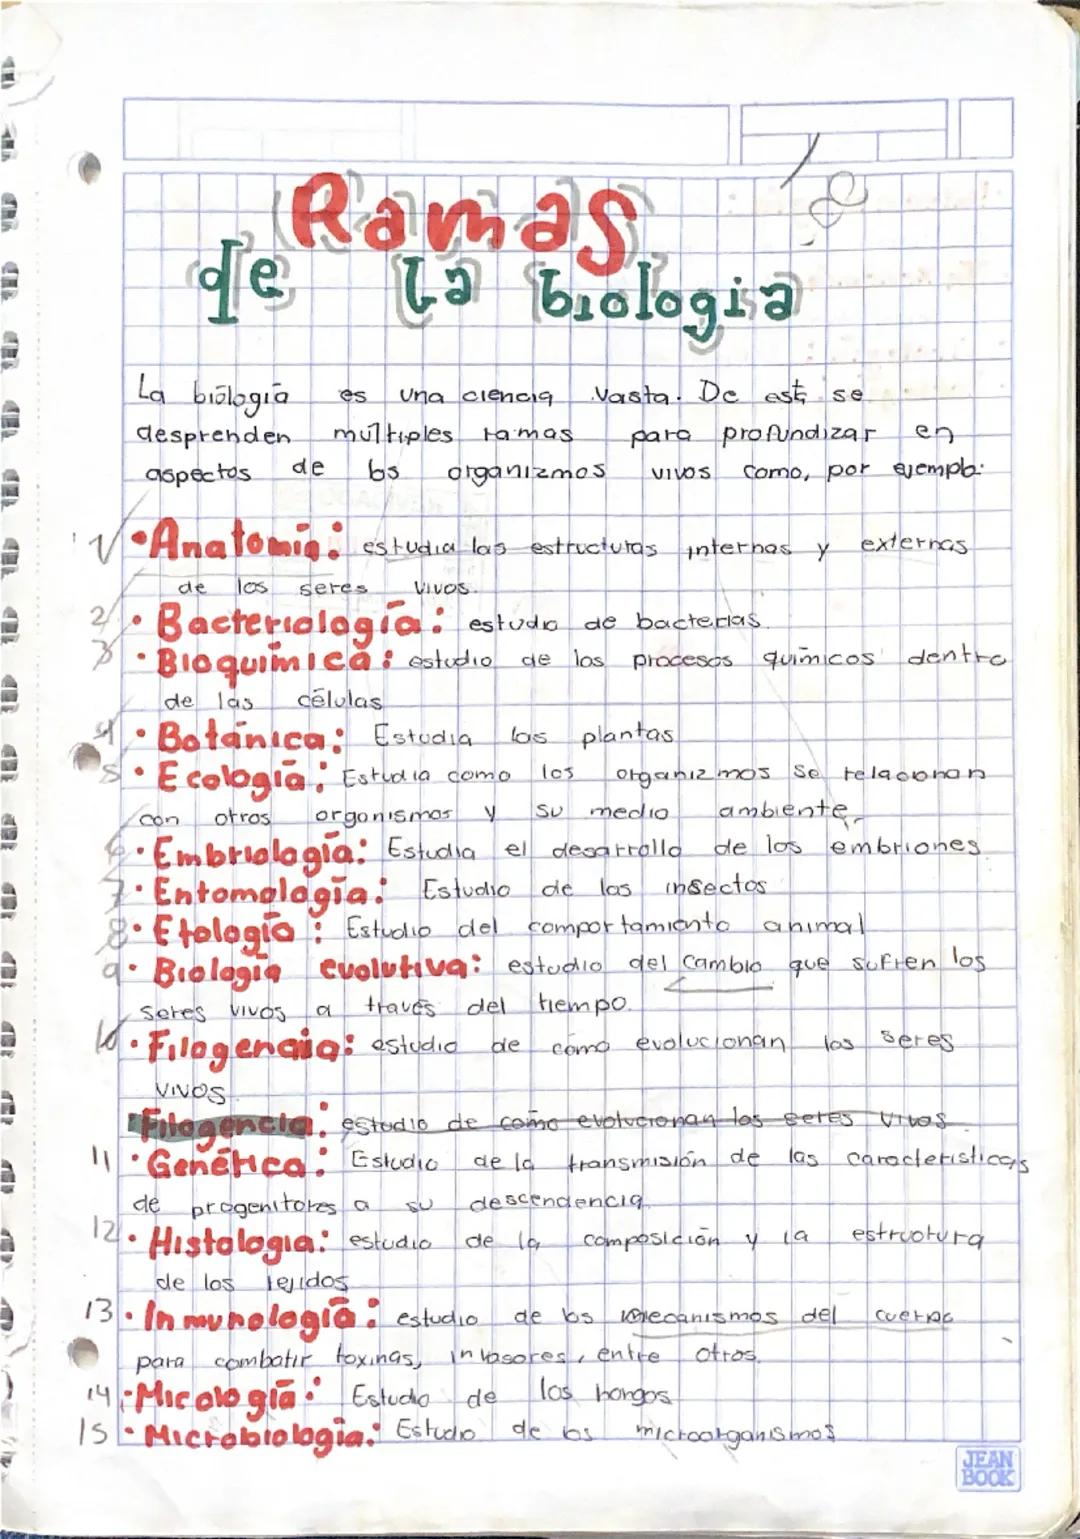 Ramas
de la biologia
La biología es una ciencia vasta. De esta se
desprenden multiples ramas para profundizar en
aspectos de los organizmos vivos como, por ejemplo:
1 • Anatomia: estudia las estructuras internas y externas
de los seres vivos.
2 • Bacteriología: estudio de bacterias.
3 • Bioquímica: estudio de los procesos químicos dentro
de las células
4 • Botánica: Estudia las plantas
5 • Ecología: Estudia como los organizmos se relacionan
con otros organismos y su medio ambiente.
6 • Embriología: Estudia el desarrollo de los embriones
7 • Entomología: Estudio de los insectos
8 • Etología: Estudio del comportamiento animal
9 • Biología evolutiva: estudio del cambio que sufren los
seres vivos a través del tiempo.
10 • Filogencia: estudio de cómo evolucionan los seres
vivos
Filogencia: estudio de cómo evolucionan los seres vivos.
11 • Genética: Estudio de la transmisión de las caracteristicas
de progenitores a su descendencia
12 • Histologia: estudio de la composición y la estructura
de los tejidos
13 • Inmunología: estudio de los mecanismos del cuerpo
para combatir toxinas, invasores, entre otros.
14 • Micología: Estudio de los hongos
15 • Microbiología: Estudio de los microorganismos
JEAN
BOOK